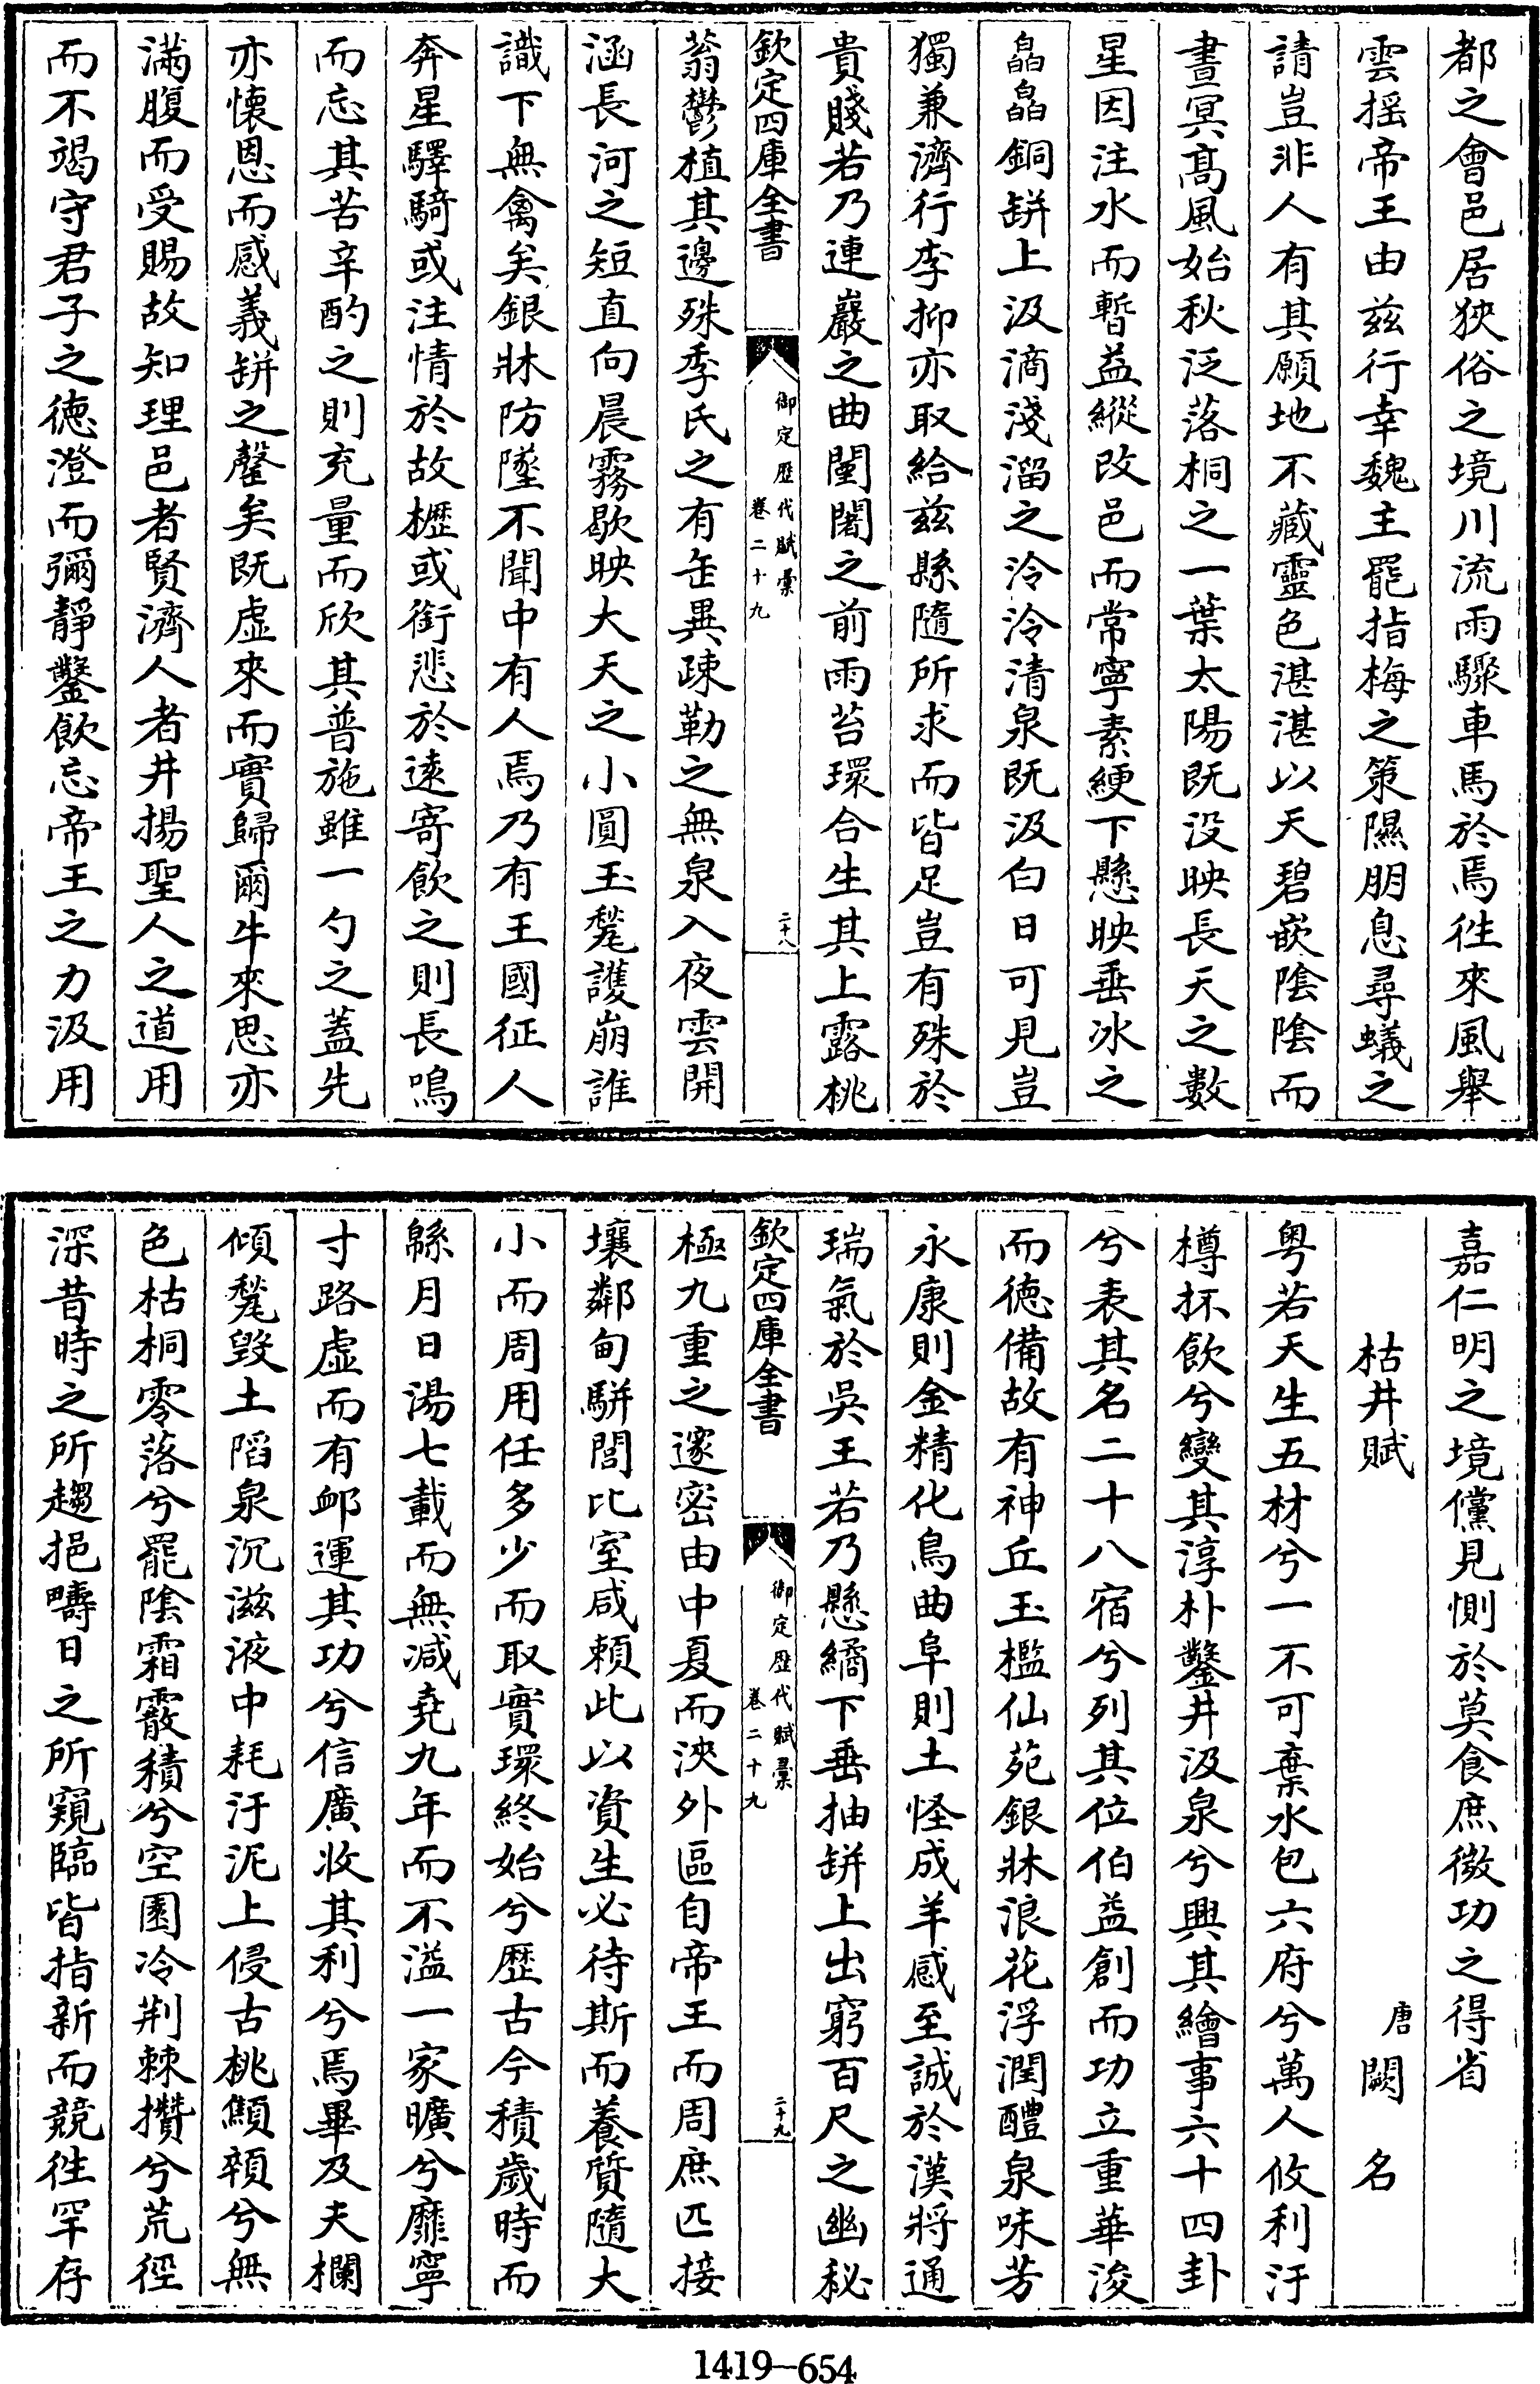 都之會邑居狹俗之境川流雨驟車馬於焉徃來風舉
雲揺帝王由兹行幸魏主罷指梅之策隰朋息尋蟻之
請豈非人有其願地不藏靈色湛湛以天碧嵌陰陰而
晝冥髙風始秋泛落桐之一葉太陽既没映長天之數
星因注水而暫益縱改邑而常寧素綆下懸映垂冰之
皛皛銅缾上汲滴淺溜之泠泠清泉既汲白日可見豈
獨兼濟行李抑亦取給兹縣隨所求而皆足豈有殊於
貴賤若乃連巖之曲闉闍之前雨苔環合生其上露桃
欽定四庫全書
御定歴代賦彚
卷二十九
二十八
蓊鬱植其邊殊季氏之有缶異疎勒之無泉入夜雲開
涵長河之短直向晨霧歇映大天之小圓玉甃護崩誰
識下無禽矣銀牀防墜不聞中有人焉乃有王國征人
奔星驛騎或注情於故櫪或銜悲於逺寄飲之則長鳴
而忘其苦辛酌之則充量而欣其普施雖一勺之蓋先
亦懐恩而感義缾之罄矣既虚來而實歸爾牛來思亦
滿腹而受賜故知理邑者賢濟人者井揚聖人之道用
而不竭守君子之徳澄而彌靜鑿飲忘帝王之力汲用
嘉仁明之境儻見惻於莫食庶微功之得省
枯井賦
唐闕名
粤若天生五材兮一不可棄水包六府兮萬人攸利汙
樽抔飲兮變其淳朴鑿井汲泉兮興其繪事六十四卦
兮表其名二十八宿兮列其位伯益創而功立重華浚
而徳備故有神丘玉檻仙苑銀牀浪花浮潤醴泉味芳
永康則金精化鳥曲阜則土怪成羊感至誠於漢將通
瑞氣於吳王若乃懸繘下垂抽缾上出窮百尺之幽秘
欽定四庫全書
御定歴代賦彚
卷二十九
二十九
極九重之邃密由中夏而浹外區自帝王而周庶匹接
壤鄰甸駢閭比室咸頼此以資生必待斯而養質隨大
小而周用任多少而取實環終始兮歴古今積歲時而
緜月日湯七載而無减堯九年而不溢一家曠兮靡寧
寸路虚而有䘏運其功兮信廣收其利兮焉畢及夫欄
傾甃毀土陷泉沉滋液中耗汙泥上侵古桃顦顇兮無
色枯桐零落兮罷陰霜霰積兮空園冷荆棘攅兮荒徑
深昔時之所趨挹疇日之所窺臨皆指新而競徃罕存
1419—654